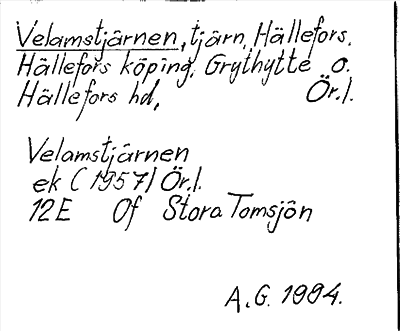 Velamstjärnen, tjärn, Hällefors.
Hällefors köping, Grythytte o.
Hällefors hd, Ör.l.
Velamstjärnen
ek (1957) Ör.l.
12E Of Stora Tomsjön
A.G. 1994.